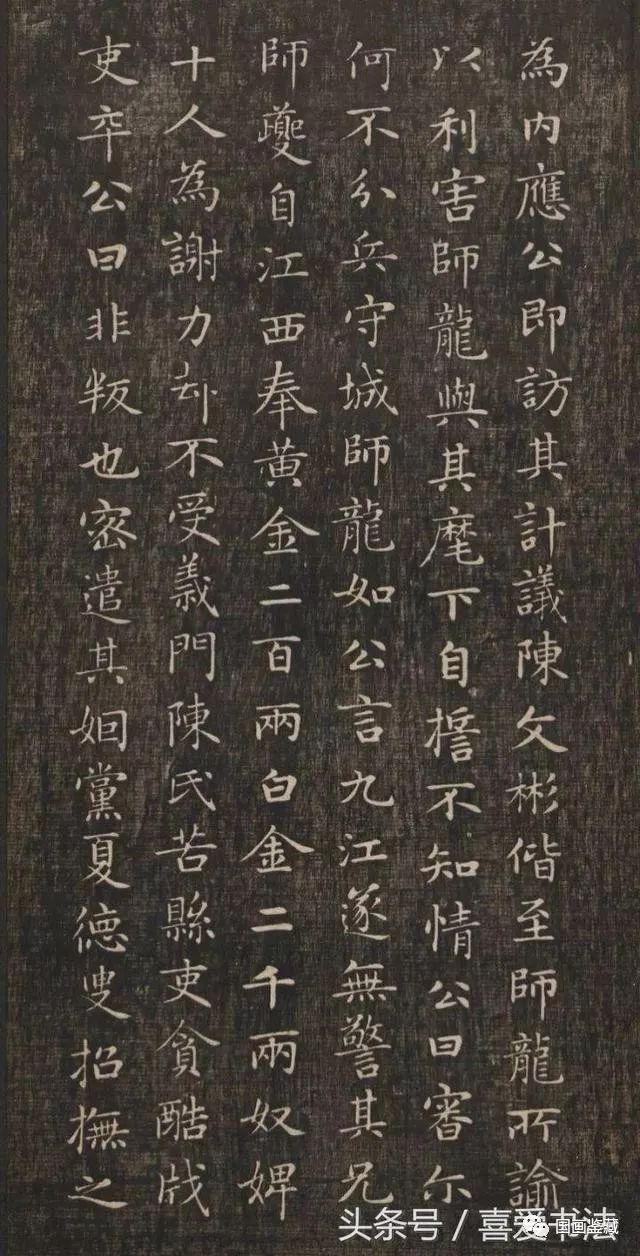 為内應公即訪其計議陳文彬偕至師龍所諭
以利害師龍與其麾下自誓不知情公曰審尔
何不分兵守城師龍如公言九江遂無警其兄
師夔自江西奉黄金二百兩白金二千兩奴婢
十人為謝力却不受義門陳氏苦縣吏貪酷戕
吏卒公曰非叛也密遣其姻黨夏德叟招撫之
头条号 / 喜爱书法
国画鉴藏